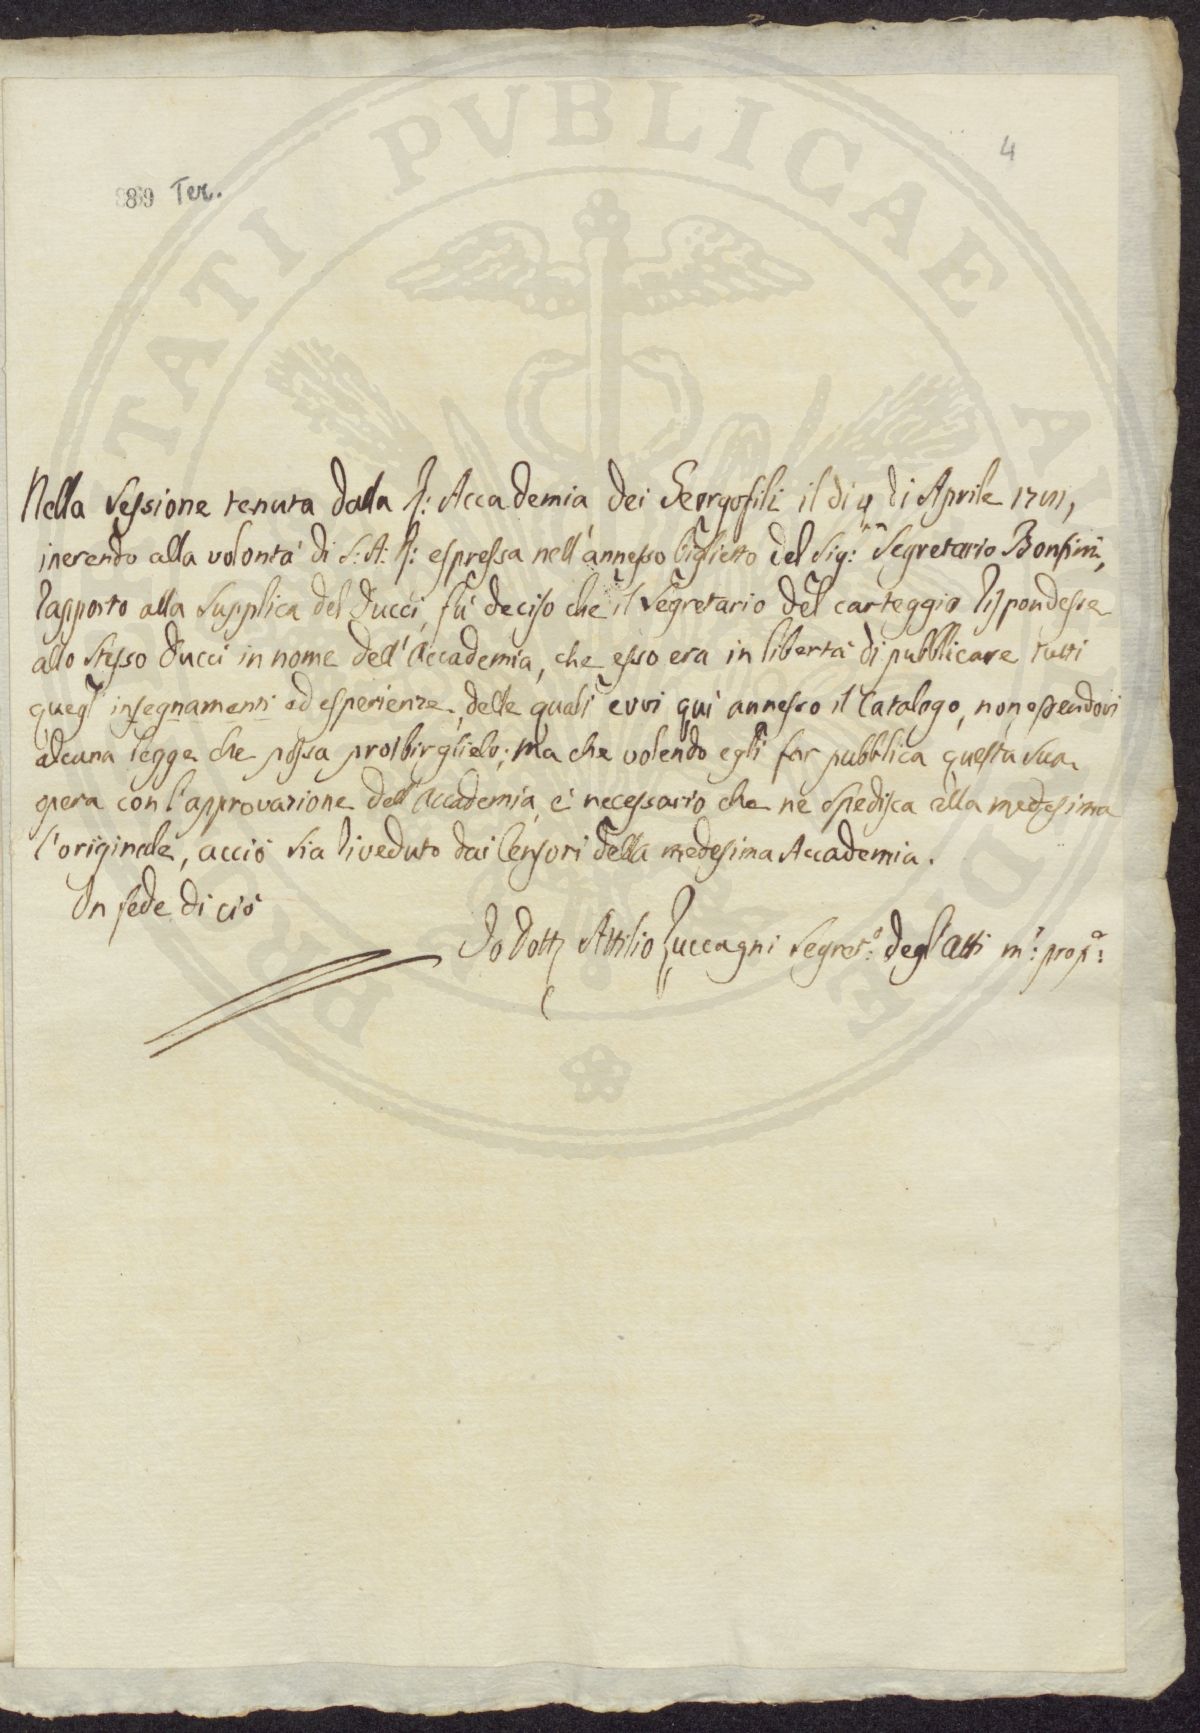 4
889 Ter.
Nella sessione tenuta dalla R: Accademia dei Georgofili il dì 4 di Aprile
inerendo alla volontà di S: A: R: espressa nell'annesso biglietto del Sig:re Segretario Bonfini,
rapporto alla supplica del Ducci, fù deciso che il Segretario del carteggio rispondesse
allo stesso Ducci in nome dell'Accademia, che esso era in libertà di pubblicare tutti
quegl'insegnamenti ed esperienze, delle quali evvi quì annesso il Catalogo, non essendovi
alcuna legge che possa proibirglielo; ma che volendo egli far pubblica questa sua
opera con l'approvazione dell'Accademia, è necessario che ne spedisca alla medesima
l'originale, acciò sia riveduto dai Censori della medesima Accademia.
In fede di ciò
Io Dott: Attilio Zuccagni Segret:o degl'Atti m:o prop:a
PUBLICAE